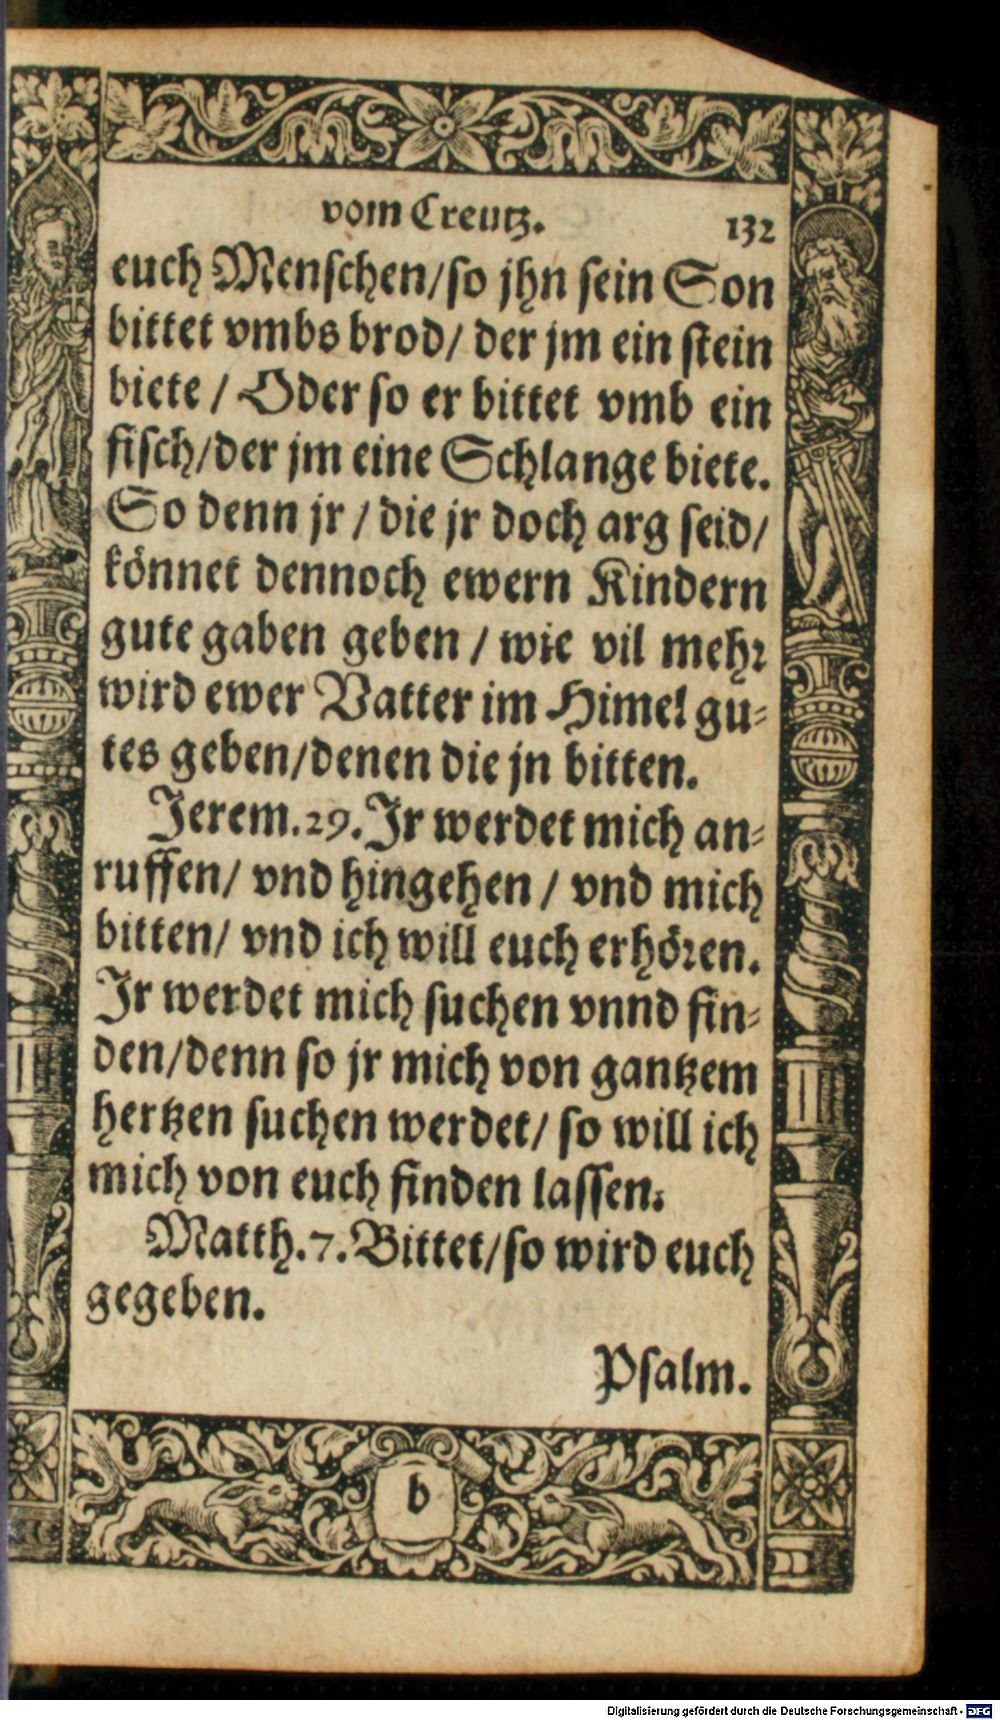 vom Creutz. 132
euch Menschen/so jhn sein Son
bittet vmbs brod/ der jm ein stein
biete / Oder so er bittet vmb ein
fisch/der jm eine Schlange biete.
So denn jr / die jr doch arg seid/
könnet dennoch ewern Kindern
gute gaben geben / wie vil mehr
wird ewer Vatter im Himel gu⸗
tes geben/denen die jn bitten.
Jerem.29.Jr werdet mich an⸗
ruffen/ vnd hingehen / vnd mich
bitten/ vnd ich will euch erhören.
Jr werdet mich suchen vnnd fin⸗
den/denn so jr mich von gantzem
hertzen suchen werdet/ so will ich
mich von euch finden lassen.
Matth.7.Bittet/so wird euch
gegeben.
Psalm.
b
Digitalisierung gefördert durch die Deutsche Forschungsgemeinschaft - DFG